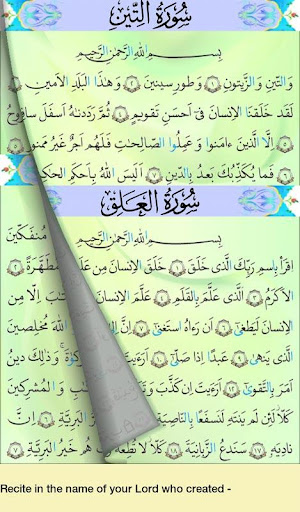 سُورَةُ التِّينِ
بِسْمِ اللهِ الرَّحْمٰنِ الرَّحِيمِ
وَالتِّينِ وَالزَّيْتُونِ ﴿١﴾ وَطُورِ سِينِينَ ﴿٢﴾ وَهٰذَا الْبَلَدِ الْأَمِينِ ﴿٣﴾
لَقَدْ خَلَقْنَا الْإِنسَانَ فِي أَحْسَنِ تَقْوِيمٍ ﴿٤﴾ ثُمَّ رَدَدْنَاهُ أَسْفَلَ
﴿٥﴾ إِلَّا الَّذِينَ ءَامَنُوا وَعَمِلُوا الصَّالِحَاتِ فَلَهُمْ أَجْرٌ غَيْرُ
﴿٦﴾ فَمَا يُكَذِّبُكَ بَعْدُ بِالدِّينِ ﴿٧﴾ أَلَيْسَ اللهُ بِأَحْكَمِ
سُورَةُ الْعَلَقِ
بِسْمِ اللهِ الرَّحْمٰنِ الرَّحِيمِ مُنفَكِّينَ
اقْرَأْ بِاسْمِ رَبِّكَ الَّذِي خَلَقَ ﴿١﴾ خَلَقَ الْإِنسَانَ مِنْ مُّطَهَّرَةً ﴿٢﴾
الْأَكْرَمُ ﴿٣﴾ الَّذِي عَلَّمَ بِالْقَلَمِ ﴿٤﴾ عَلَّمَ الْإِنسَانَ إِلَّا مِنْ
الْإِنسَانَ لَيَطْغَىٰ ﴿٦﴾ أَن رَّآهُ اسْتَغْنَىٰ ﴿٧﴾ إِنَّ اللهَ مُخْلِصِينَ
الَّذِي يَنْهَىٰ ﴿٩﴾ عَبْدًا إِذَا صَلَّىٰ ﴿١٠﴾ وَذٰلِكَ دِينُ
أَمَرَ بِالتَّقْوَىٰ ﴿١٢﴾ أَرَأَيْتَ إِن كَذَّبَ وَالْمُشْرِكِينَ
كَلَّا لَئِن لَّمْ يَنتَهِ لَنَسْفَعًا بِالنَّاصِيَةِ الْبَرِيَّةِ ﴿٦﴾
نَادِيَهُ ﴿١٧﴾ سَنَدْعُ الزَّبَانِيَةَ ﴿١٨﴾ كَلَّا لَا تُطِعْهُ هُمْ خَيْرُ الْبَرِيَّةِ ﴿٧﴾
Recite in the name of your Lord who created -